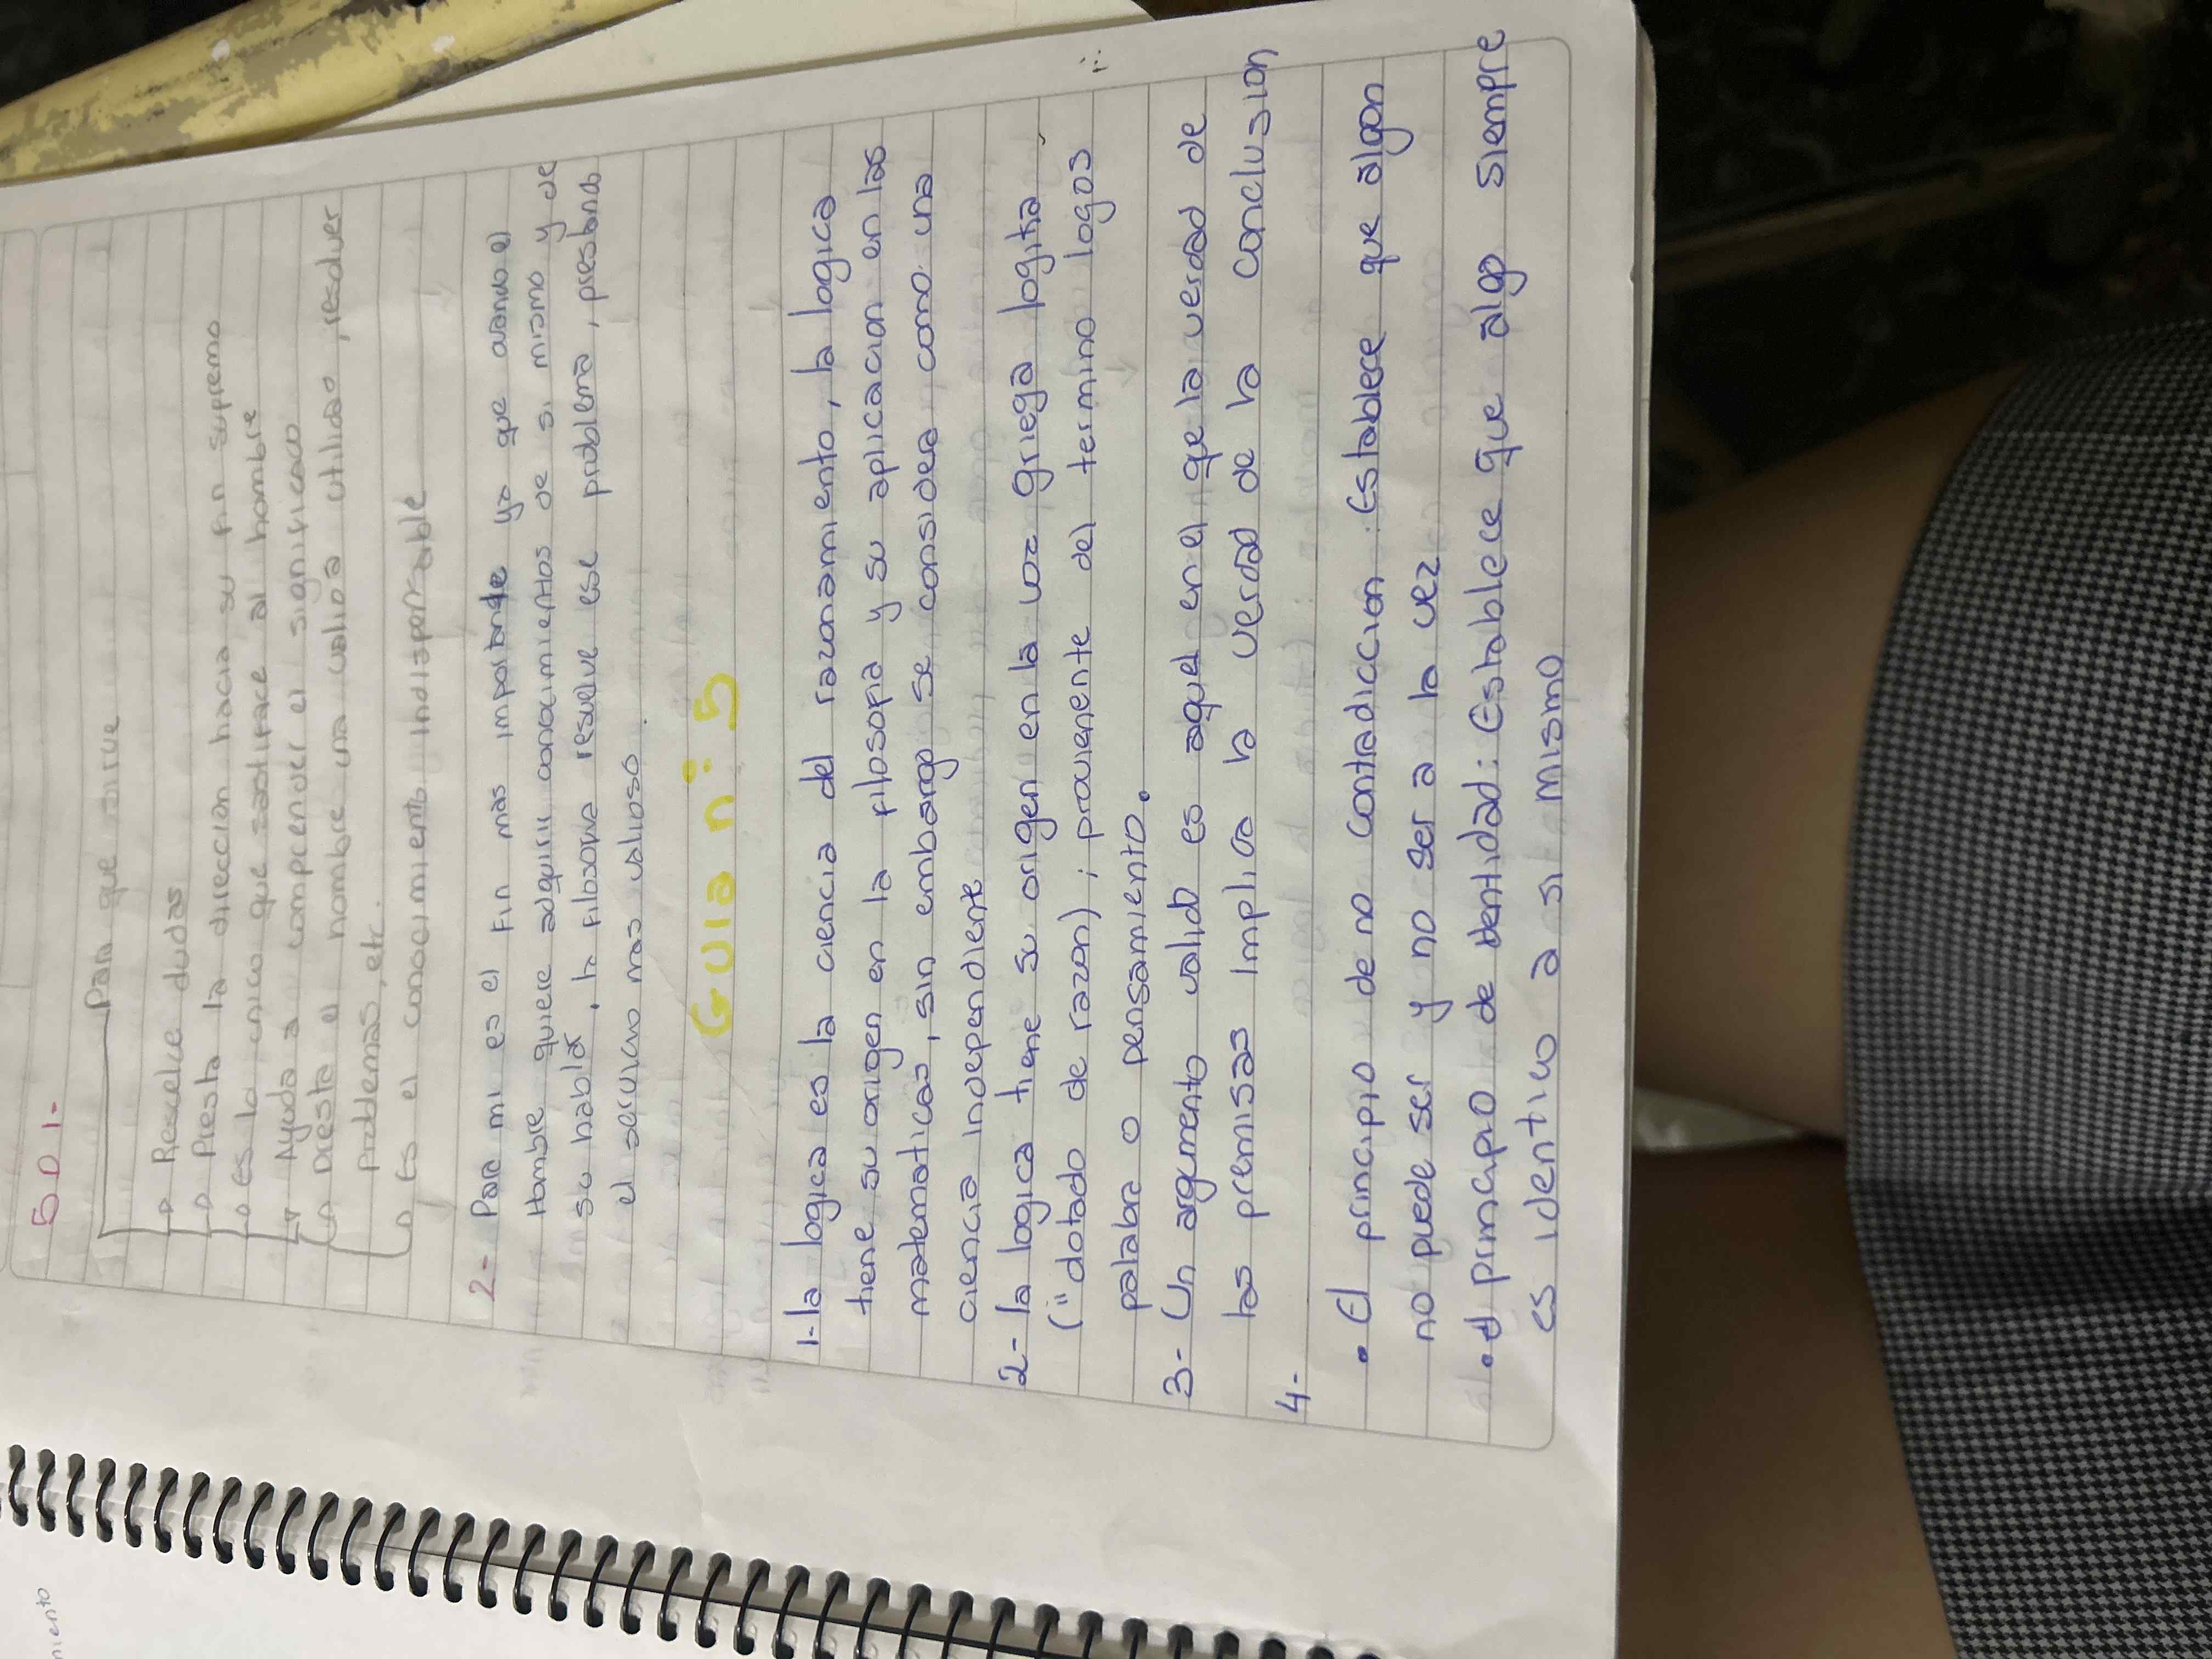 5D 1-
Para que sirve
Resuelve dudas
Presta la direccion hacia su fin supremo
Es lo unico que satisface al hombre
Ayuda a comprender el significado
Presta el hombre una valiosa utilidad, resolver
problemas, etc.
Es el conocimiento indispensable
2- Para mi es el fin mas importante ya que cuando el
Hombre quiere adquirir conocimientos de si mismo y de
su habla, la filosofia resuelve ese problema, prestando
el servicio mas valioso.
Guia n° 5
1- la logica es la ciencia del razonamiento, la logica
tiene su origen en la filosofia y su aplicacion en las
matematicas, sin embargo se considera como una
ciencia independiente
2- la logica tiene su origen en la voz griega logika
("dotado de razon); provienente del termino logos
palabra o pensamiento.
3- Un argumento valido es aquel en el que la verdad de
las premisas implica la verdad de la conclusion
4-
• El principio de no contradiccion: Establece que algon
no puede ser y no ser a la vez
• el principio de identidad: Establece que algo siempre
es identico a si mismo
miento